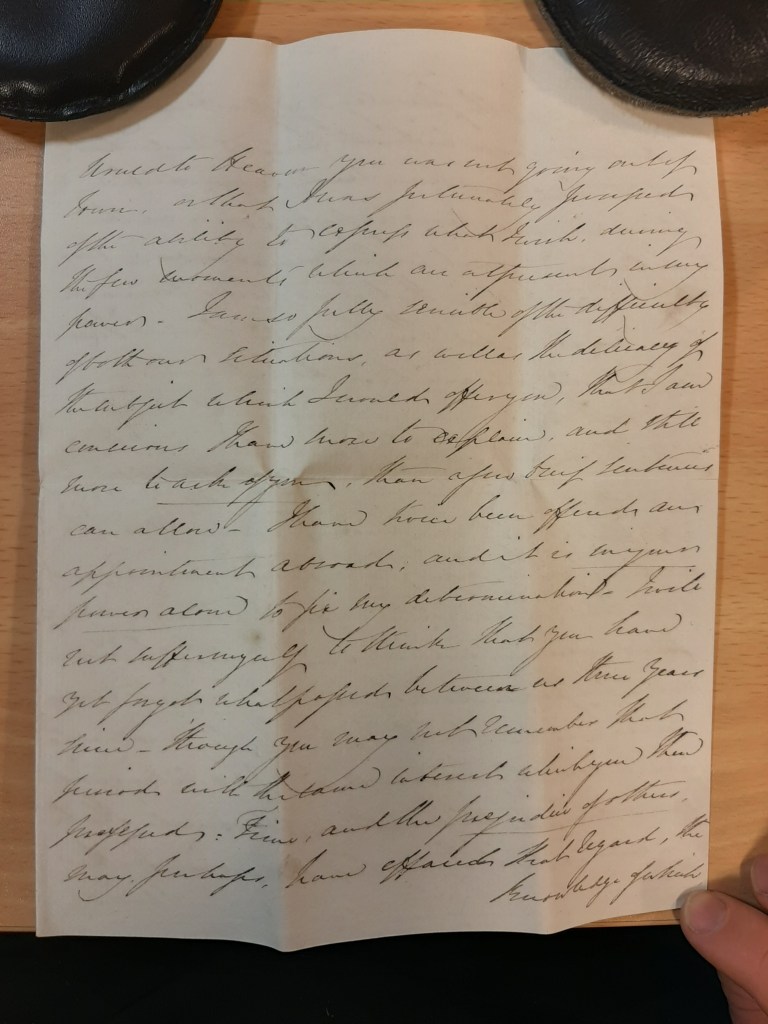 Would to Heaven you was not going out of
Town, or that I was fortunately possessed
of the ability to express what I wish, during
the few moments which are at present in my
power - I am so fully sensible of the difficulty
of both our situations, as well as the delicacy of
the subject which I would offer you, that I am
conscious I have more to explain, and still
more to ask of you, than a few brief sentences
can allow - I have twice been offered an
appointment abroad; and it is in your
power alone to fix my determination - I will
not suffer myself to think that you have
yet forgot what passed between us three years
since - though you may not remember that
period with the same interest which you then
professed: Time, and the prejudice of others,
may, perhaps, have effaced that regard, the
knowledge of which